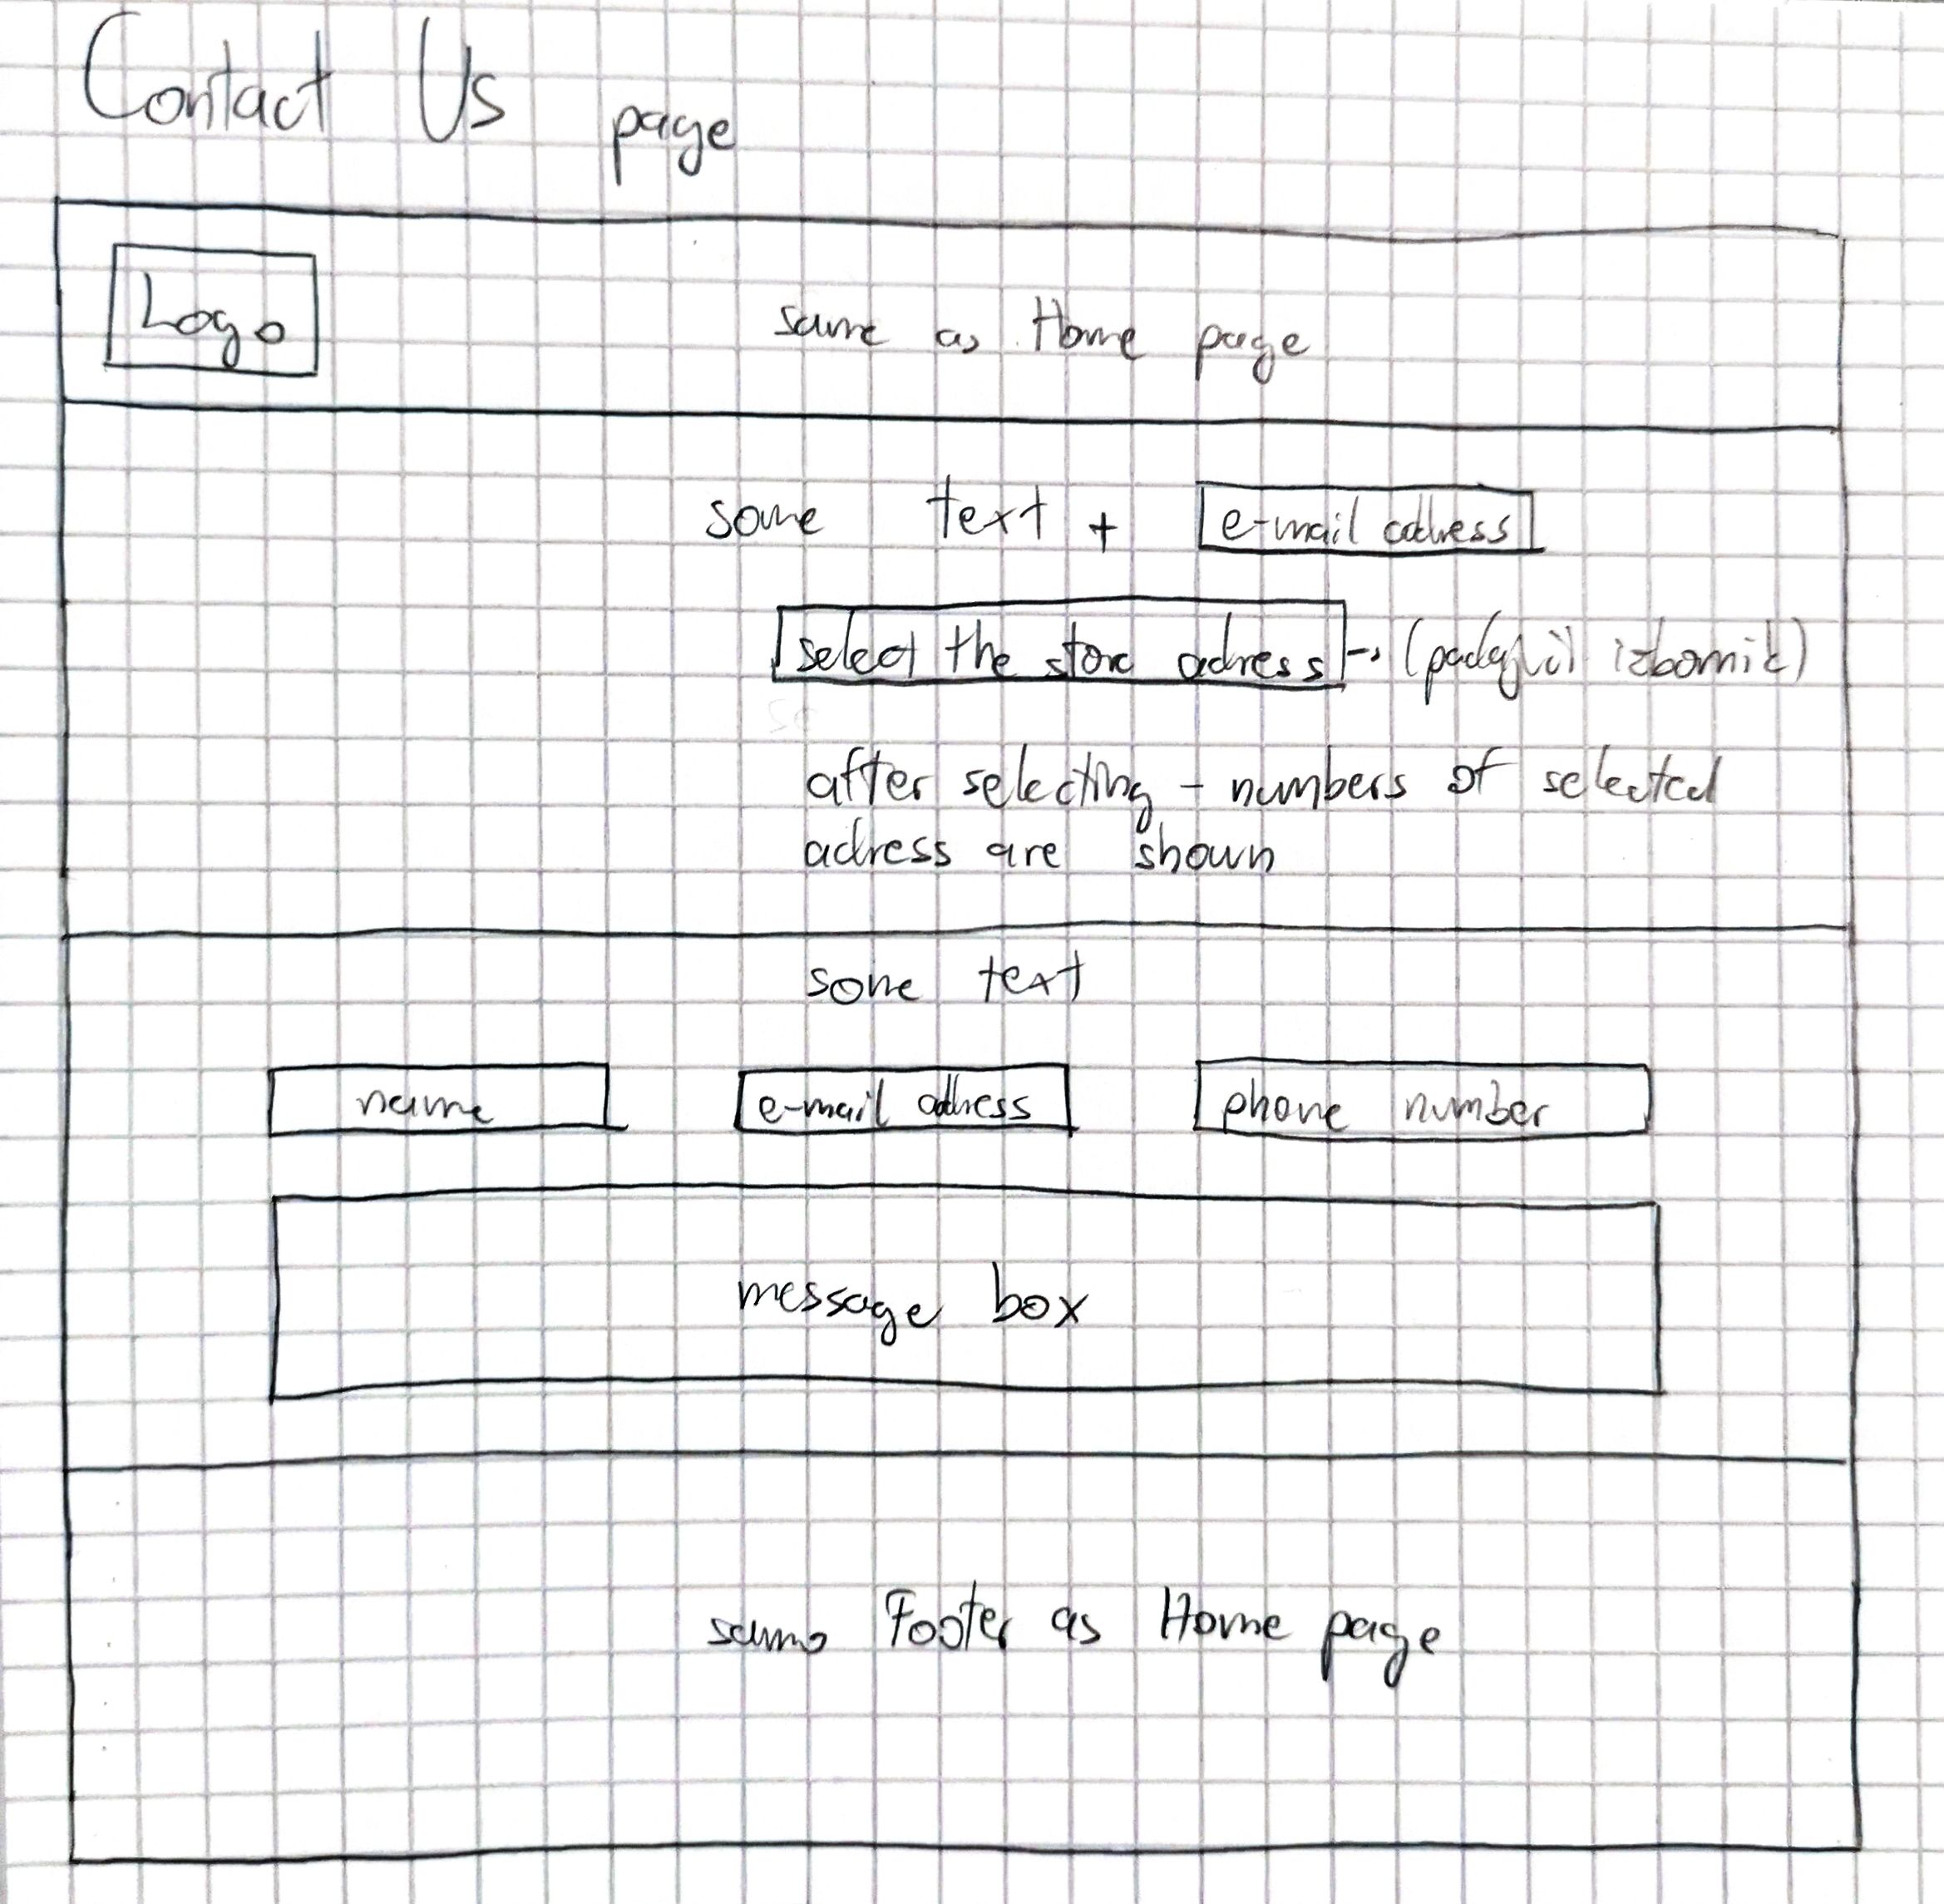 Contact Us page
Logo
same as Home page
some text + e-mail adress
select the store adress → (padajući izbornik)
after selecting - numbers of selected
adress are shown
some text
name e-mail adress phone number
message box
same Footer as Home page